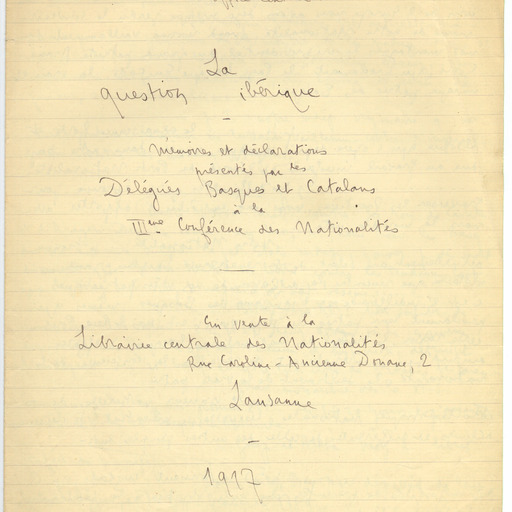 La
question ibérique
Mémoires et déclarations
présentés par les
Délégués Basques et Catalans
à la
IIIme Conférence des Nationalités
En vente à la
Librairie centrale des Nationalités
Rue Caroline - Ancienne Douane, 2
Lausanne
1917